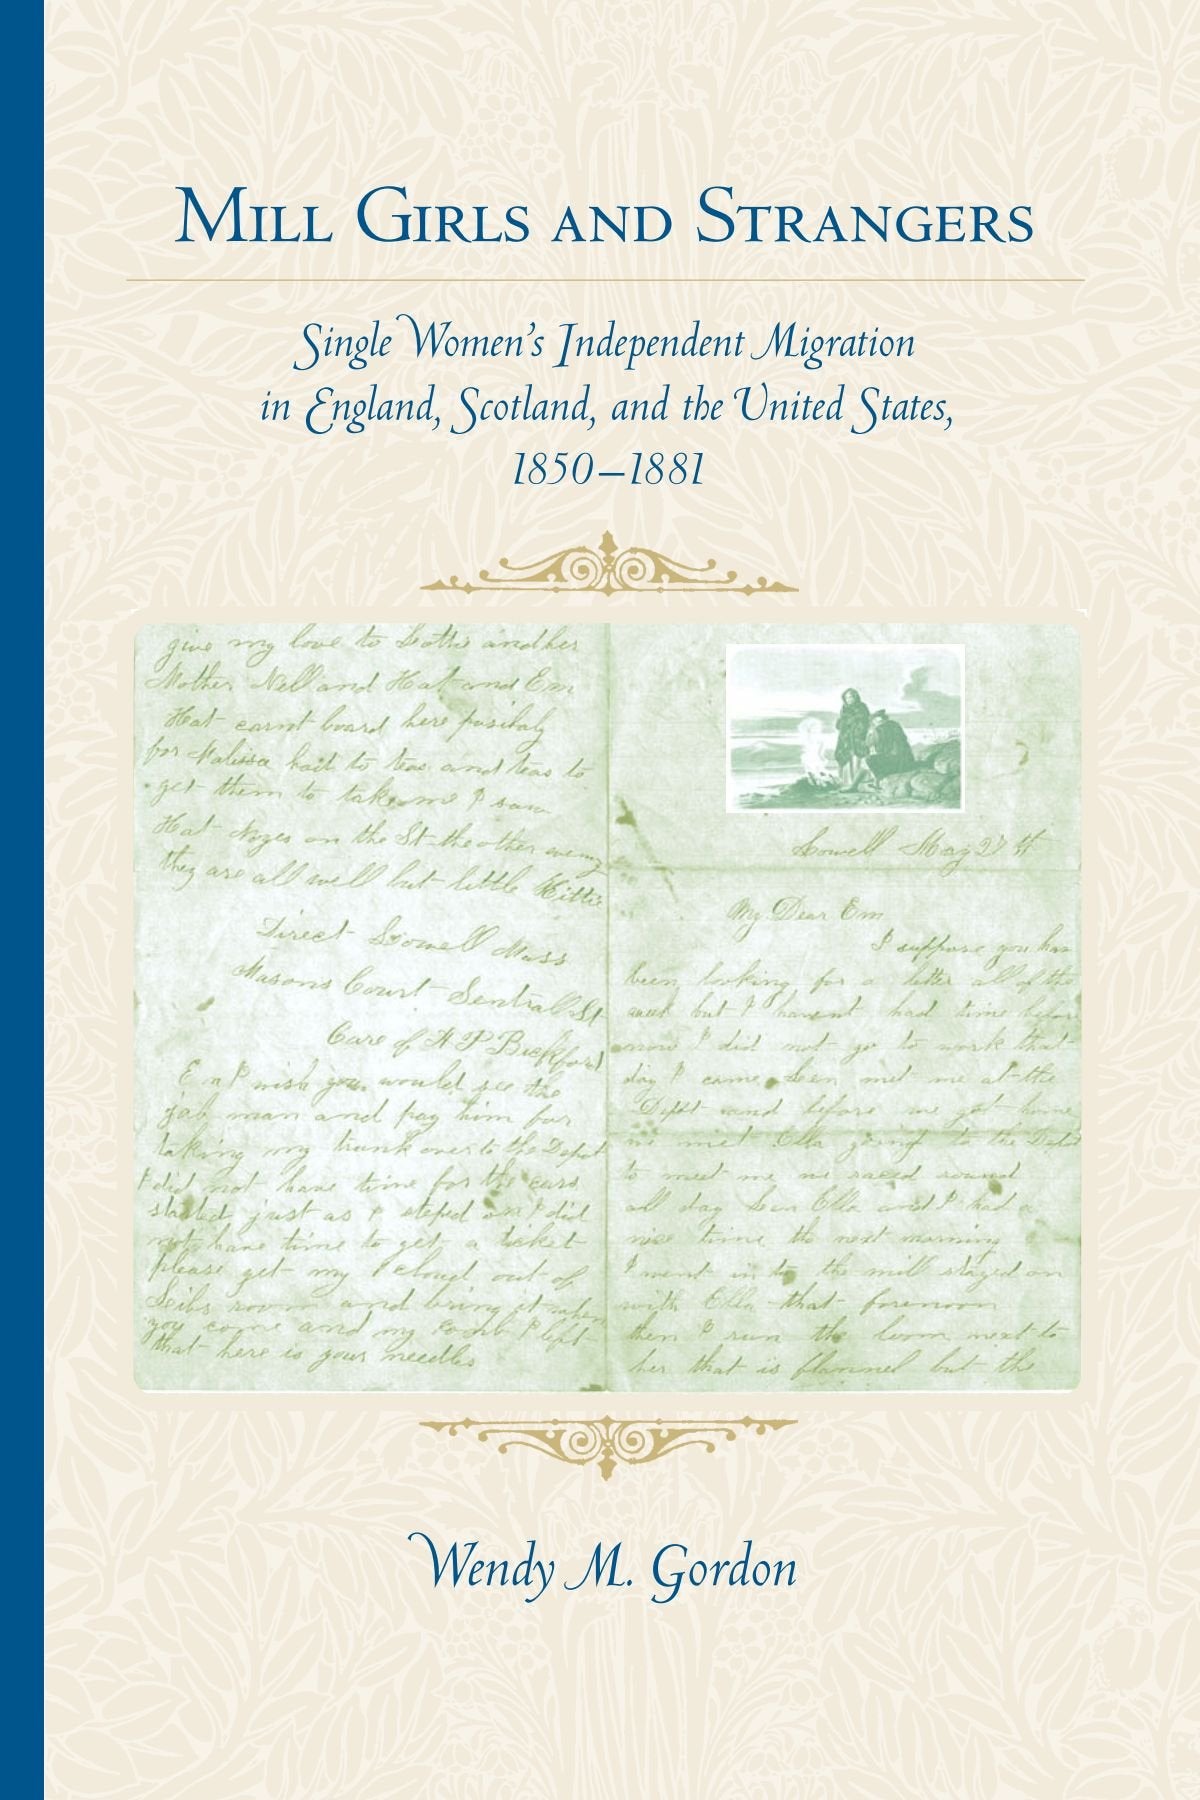 Mill Girls and Strangers
Single Women's Independent Migration
in England, Scotland, and the United States,
1850–1881
give my love to Lottie and her
Mother Nell and Hat and Em
Hat carnt board here
for Malissa hait to teas and teas to
get them to take me I saw
Hat Nozes on the St the other
they are all well but little Kittie
Direct Lowell Mass
Masons Court Sentrall St
Care of A P Bickford
Em I wish you would see the
job man and pay him for
taking my trunk over to the Depot
I did not have time for the cars
started just as I steped on I did
not have time to get a ticket
please get my cloud out of
room and bring it when
you come and my comb I left
that here is your needles
Lowell May 27th
My Dear Em
I suppose you have
been looking for a letter all of the
week but I havent had time before
now I did not go to work that
day I came met me at the
Depot and before we got home
we met Ella going to the Depot
to meet me we raced round
all day Ella and I had a
nice time the next morning
I went in to the mill stayed on
with Ella that forenoon
then I run the loom next to
her that is flannel but the
Wendy M. Gordon